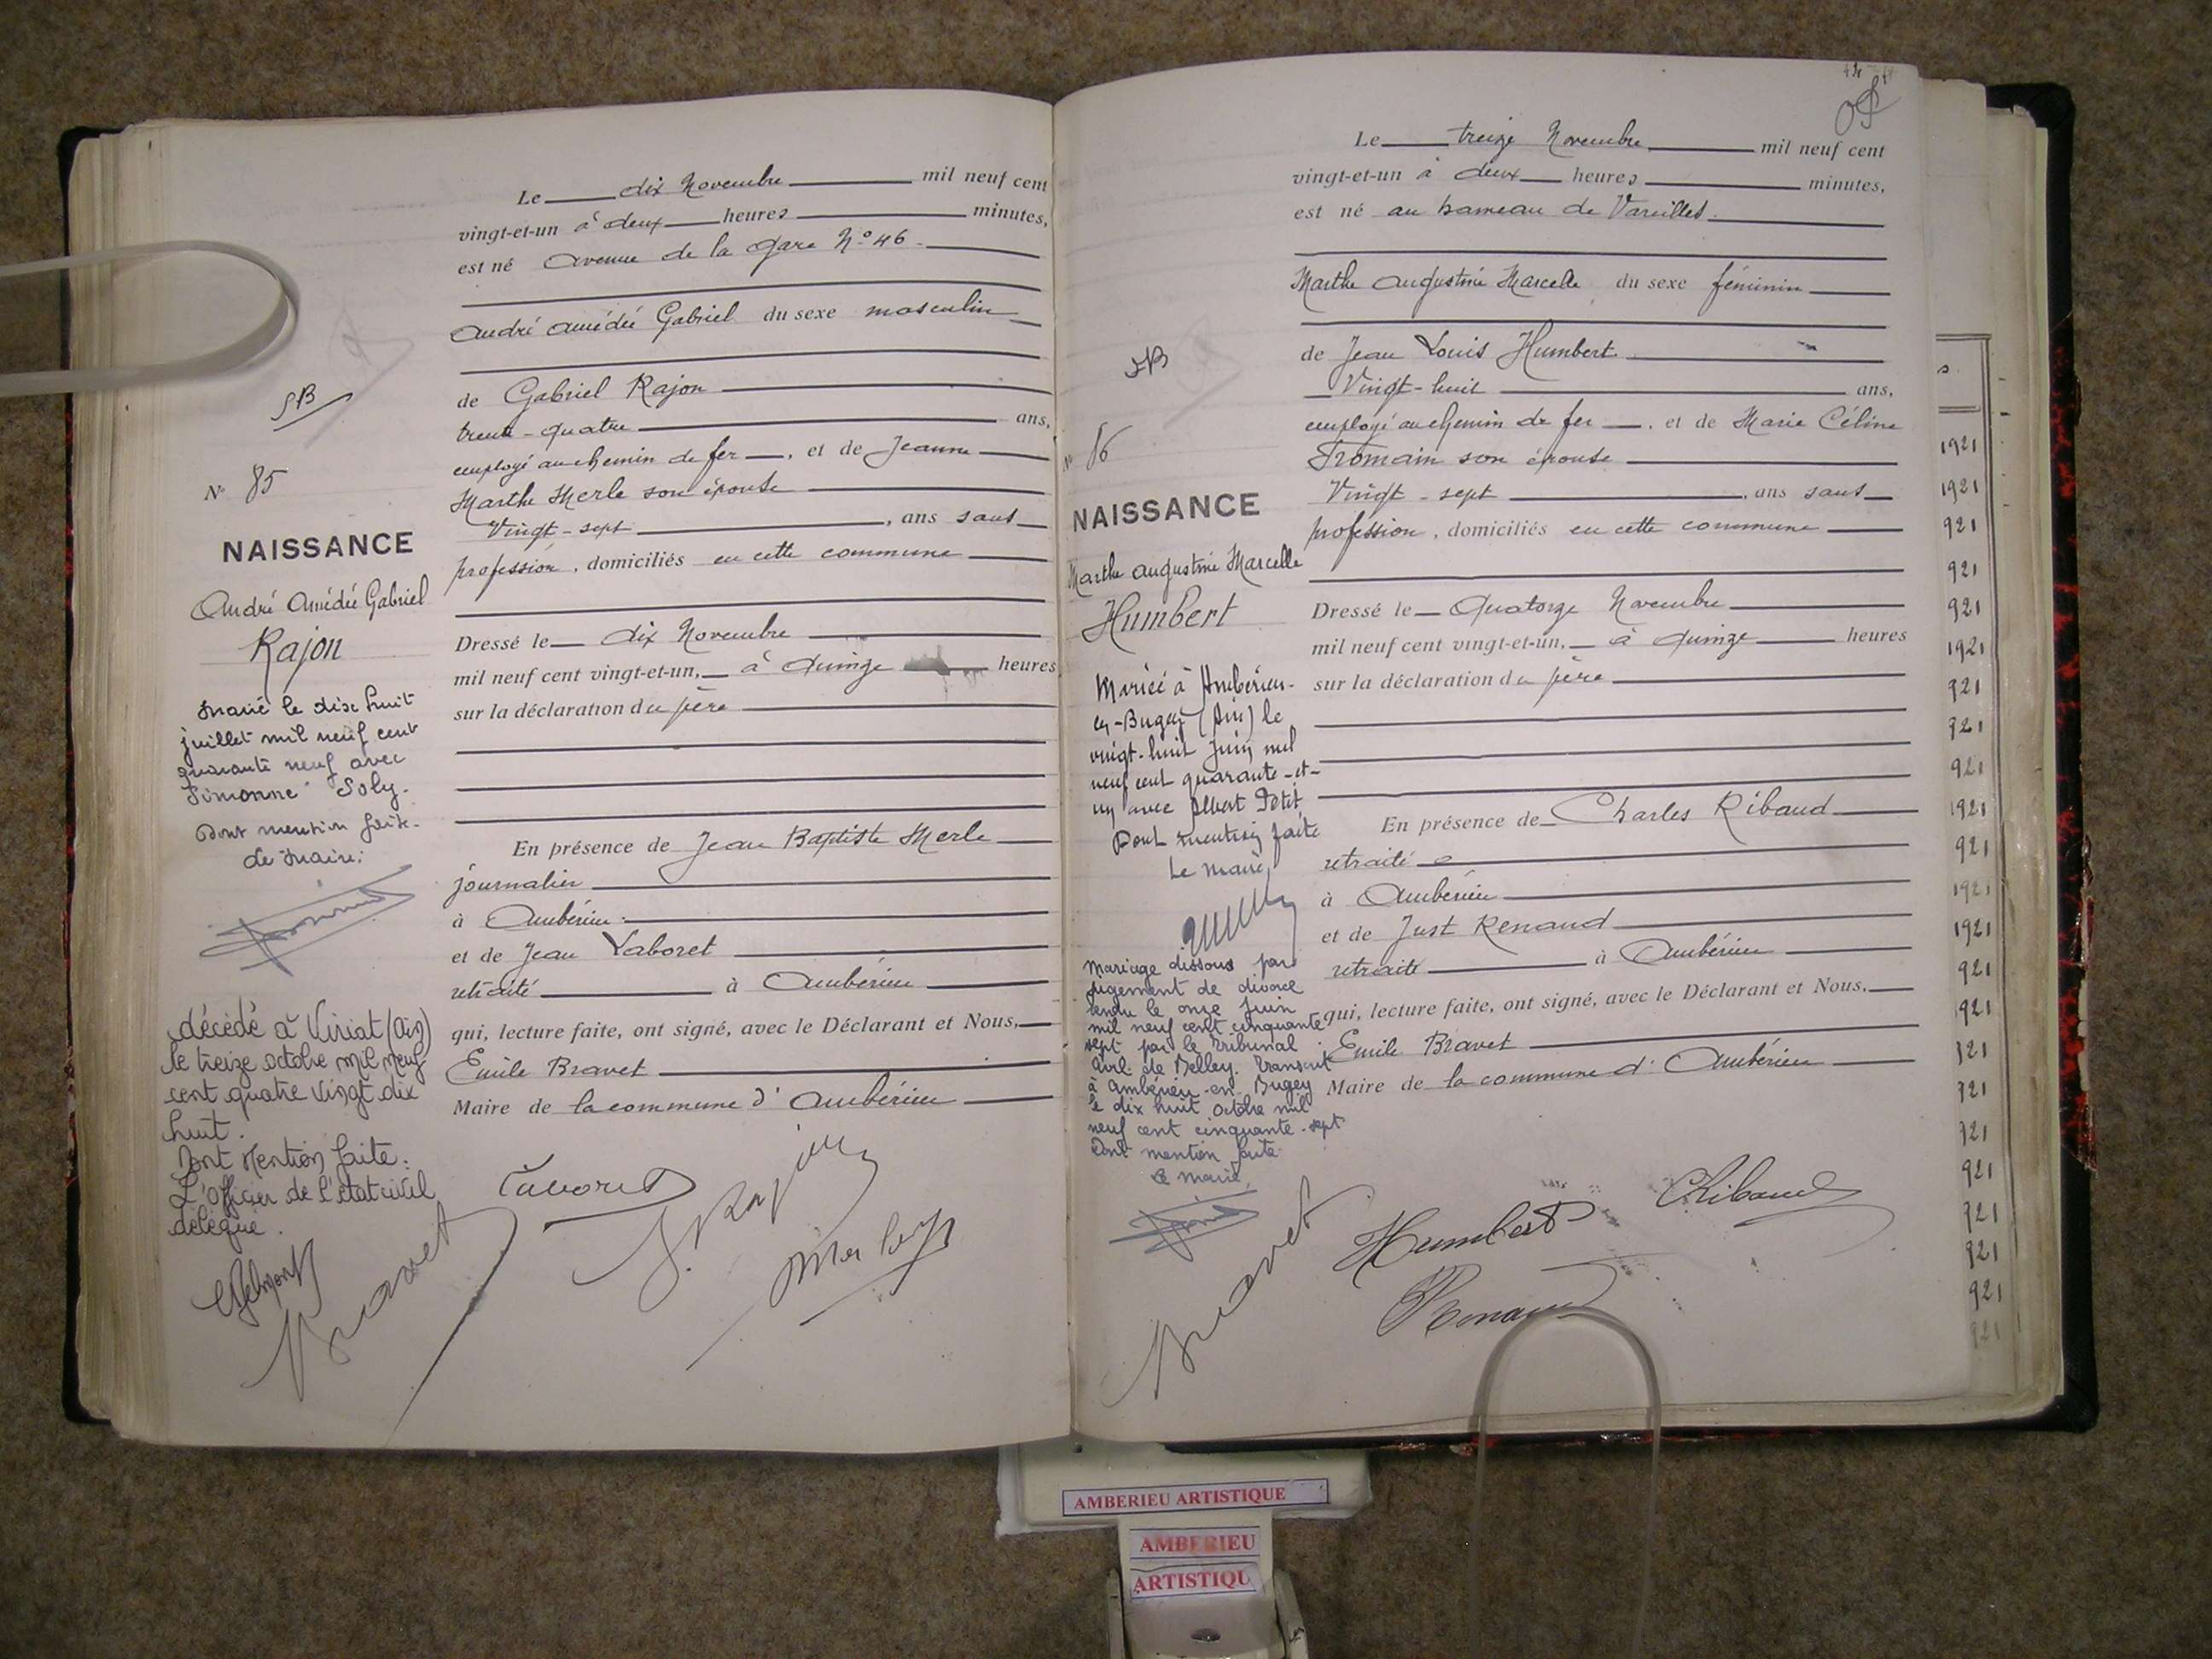 Le dix Novembre mil neuf cent
vingt-et-un à deux heures minutes,
est né avenue de la gare N° 46.
André Amédée Gabriel du sexe masculin
de Gabriel Rajon
trente-quatre ans,
employé au chemin de fer, et de Jeanne
Marthe Merle son épouse
Vingt-sept, ans sans
profession, domiciliés en cette commune
Dressé le dix Novembre
mil neuf cent vingt-et-un, à quinze heures
sur la déclaration du père
En présence de Jean Baptiste Merle
journalier
à Ambérieu.
et de Jean Laboret
retraité à Ambérieu
qui, lecture faite, ont signé, avec le Déclarant et Nous,
Emile Bravet
Maire de la commune d'Ambérieu
SB
N° 85
NAISSANCE
André Amédée Gabriel
Rajon
Marié le dix huit
juillet mil neuf cent
quarante neuf avec
Simonne Soly.
Dont mention faite.
Le Maire:
décédé à Viriat (Ain)
le treize octobre mil neuf
cent quatre vingt dix
huit.
Dont Mention faite:
L'officier de l'état civil
délégué.
Laboret
G. Rajon
Bravet
Le treize Novembre mil neuf cent
vingt-et-un à deux heures minutes,
est né au hameau de Vareilles.
Marthe Augustine Marcelle du sexe féminin
de Jean Louis Humbert.
Vingt-huit ans,
employé au chemin de fer, et de Marie Céline
Tromain son épouse
Vingt-sept, ans sans
profession, domiciliés en cette commune
Dressé le Quatorze Novembre
mil neuf cent vingt-et-un, à quinze heures
sur la déclaration du père
En présence de Charles Ribaud
retraité
à Ambérieu
et de Just Renaud
retraité à Ambérieu
qui, lecture faite, ont signé, avec le Déclarant et Nous,
Emile Bravet
Maire de la commune d'Ambérieu
N° 86
NAISSANCE
Marthe Augustine Marcelle
Humbert
Mariée à Ambérieu-
en-Bugey (Ain) le
vingt-huit Juin mil
neuf cent quarante-et-
un avec Albert Petit
Dont mention faite
Le Maire,
Mariage dissous par
jugement de divorce
rendu le onze juin
mil neuf cent cinquante
sept par le tribunal
civil de Belley. Transcrit
à Ambérieu-en-Bugey
le dix huit octobre mil
neuf cent cinquante-sept
Dont mention faite
Le Maire,
Bravet
Humbert
CRibaud
Renaud
1921
1921
921
921
921
1921
921
921
921
1921
921
1921
1921
921
921
921
921
921
921
921
921
921
921
AMBERIEU ARTISTIQUE
AMBERIEU
ARTISTIQU